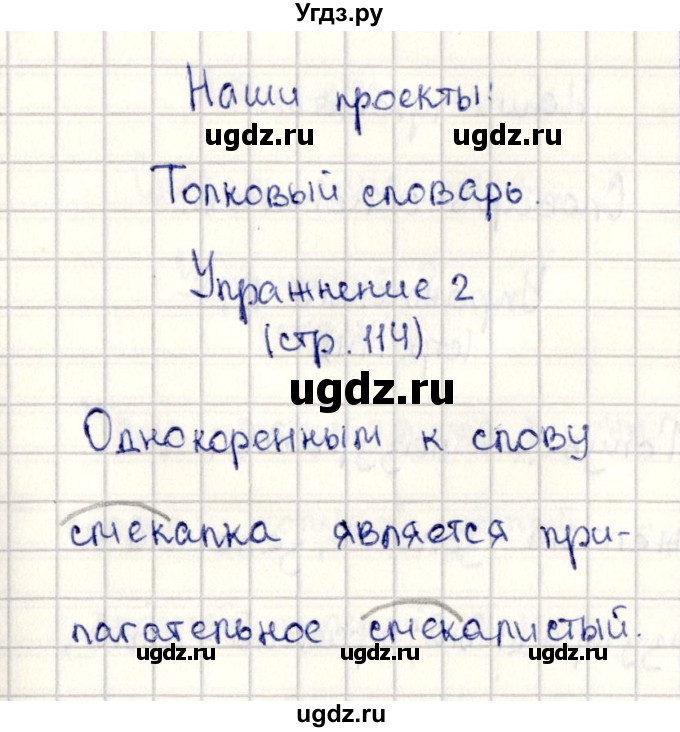 Угдз.ру
Наши проекты:
ugdz.ru ugdz.ru
Толковый словарь.
Упражнение 2
(стр. 114)
ugdz.ru
Однокоренным к слову
смекалка является при-
лагательное смекалистый.
ugdz.ru ugdz.ru ugdz.ru
ugdz.ru